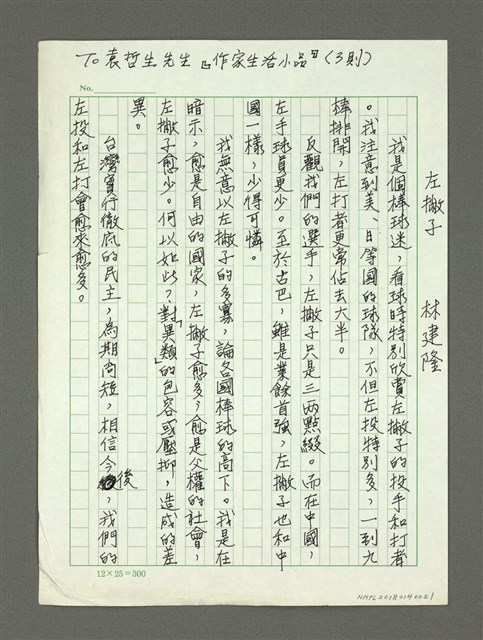 To 袁哲生先生『作家生活小品』(3則)
No.
左撇子 林建隆
我是個棒球迷,看球時特別欣賞左撇子的投手和打者
。我注意到美、日等國的球隊,不但左投特別多,一到九
棒排開,左打者更常佔去大半。
反觀我們的選手,左撇子只是三兩點綴。而在中國,
左手球員更少。至於古巴,雖是業餘首強,左撇子也和中
國一樣,少得可憐。
我無意以左撇子的多寡,論各國棒球的高下。我是在
暗示,愈是自由的國家,左撇子愈多;愈是父權的社會,
左撇子愈少。何以如此?對「異類」的包容或壓抑,造成的差
異。
台灣實行徹底的民主,為期尚短,相信今後,我們的
左投和左打會愈來愈多。
12×25=300
NMTL20180140021